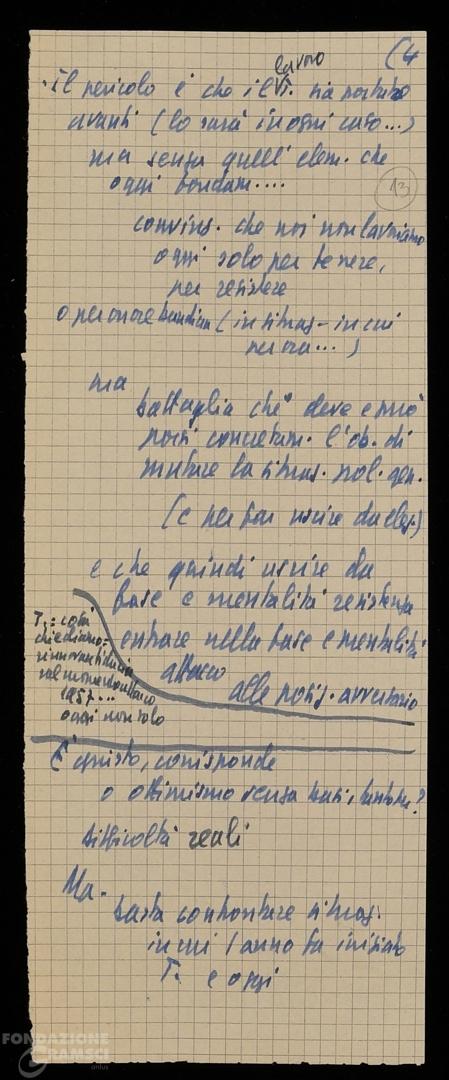 (4
lavoro
. il pericolo è che il Vi. sia portato
avanti (lo sarà in ogni caso...)
ma senza quell' elem. che
oggi fondam....
13
convins. che noi non lavoriamo
oggi solo per tenere,
per resistere
o per onore bandiera (in situaz - in cui
per ora...)
ma
battaglia che deve e può
porsi concretam. l'ob. di
mutare la situaz. pol. gen.
(e per far uscire da
e che quindi uscire da
fase e mentalità resistenza
entrare nella fase e mentalità
attacco
alle posiz. avversario
T. : così
chiediamo:
rinnovarti fiducia
nel momento attacco
1957...
oggi non solo
È giusto, corrisponde
o ottimismo senza basi,
difficoltà reali
Ma.
basta confrontare situaz.
in cui 1 anno fa iniziato
T. e oggi
FONDAZIONE
GRAMSCI
onlus